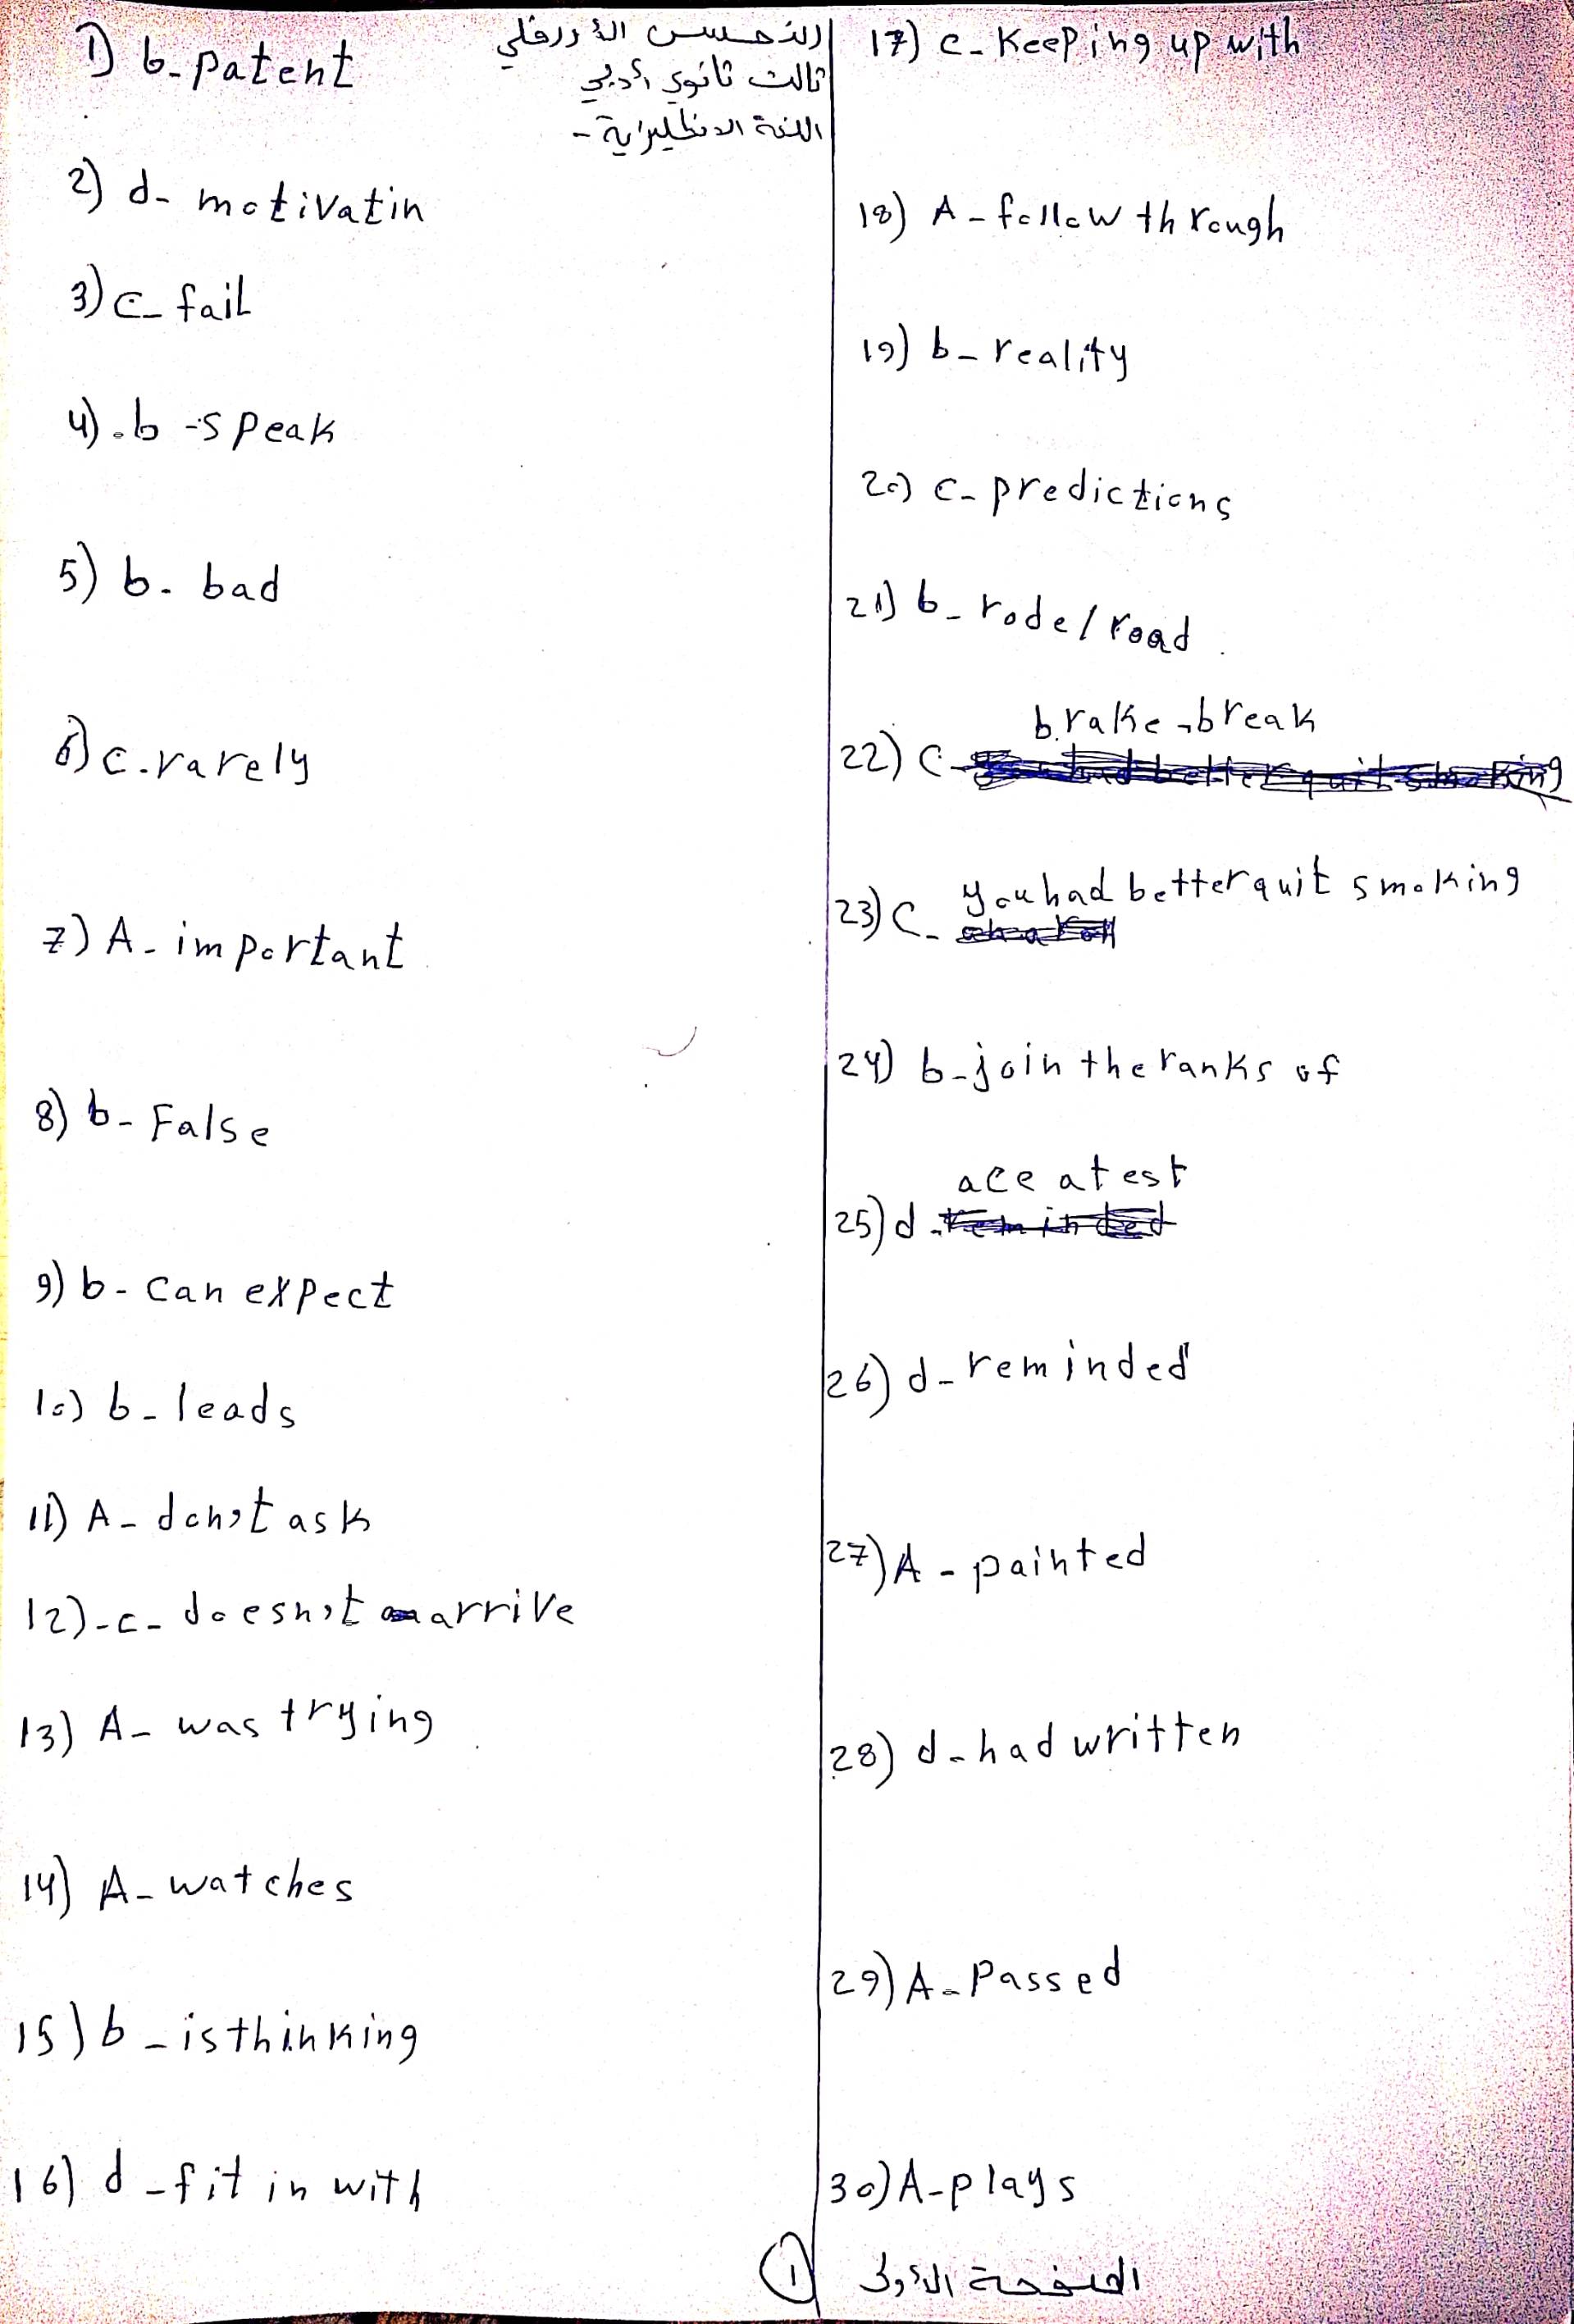 1) b-patent
ثالث ثانوي أدبي
اللغة الانظليزية -
2) d- motivatin
3) c- fail
4).b -speak
5) b- bad
6) c.rarely
7) A- important
8) b- False
9) b- can expect
10) b- leads
11) A- don,t ask
12)-c- doesn,t arrive
13) A- was trying
14) A- watches
15) b - is thinking
16) d - fit in with
17) c- Keeping up with
18) A - follow through
19) b- reality
20) c- predictions
21) b- rode/road
brake -break
22) c-
23) c- you had better quit smoking
24) b- join the ranks of
ace a test
25) d-
26) d- reminded
27) A - painted
28) d- had written
29) A- Passed
30) A- plays
1 الصفحة الأولى